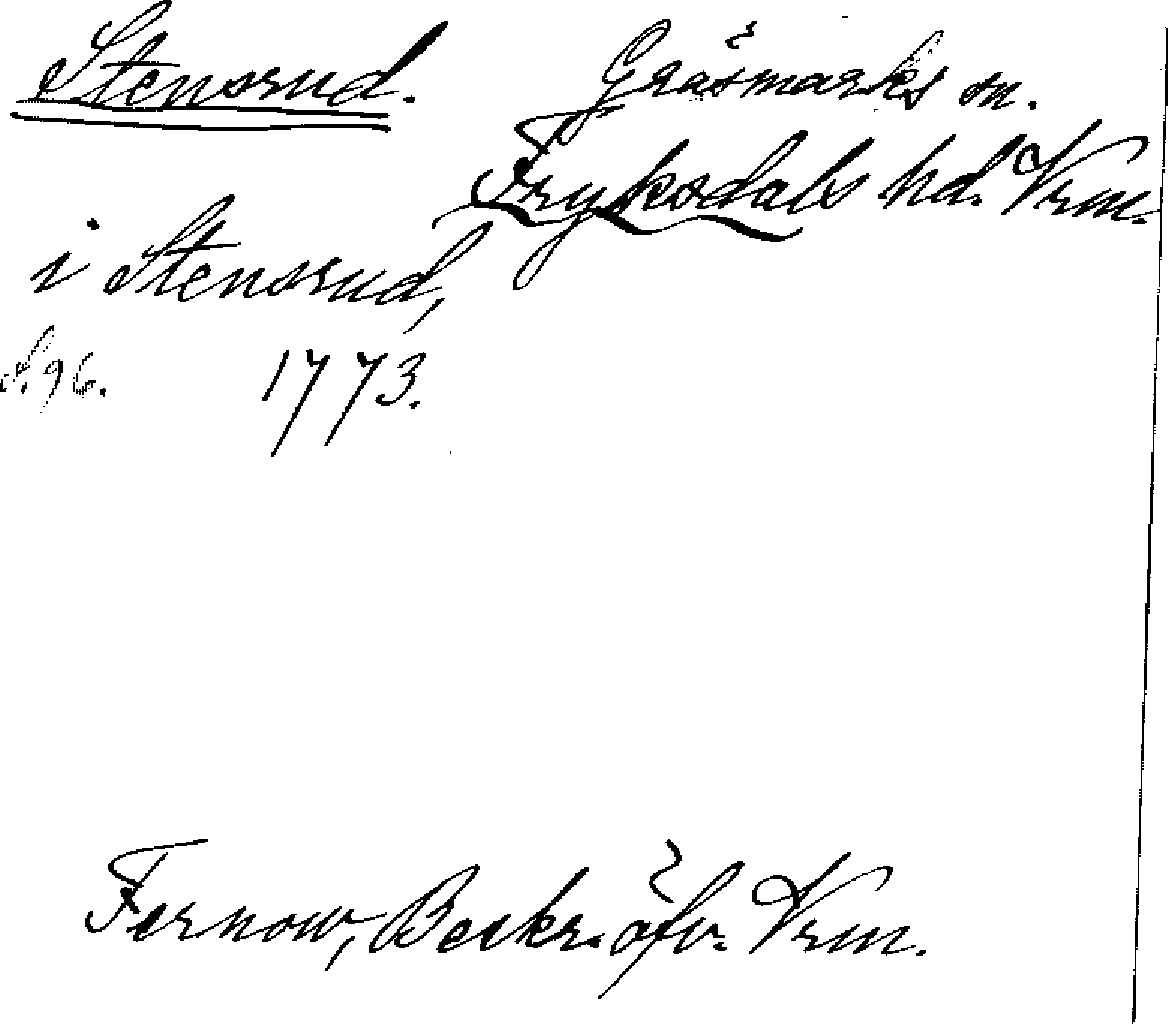 Stensrud. Gräsmarks sn.
Fryksdals hd. Vrm.
i Stensrud,
S. 96. 1773.
Fernow, Beskr. öfv. Vrm.